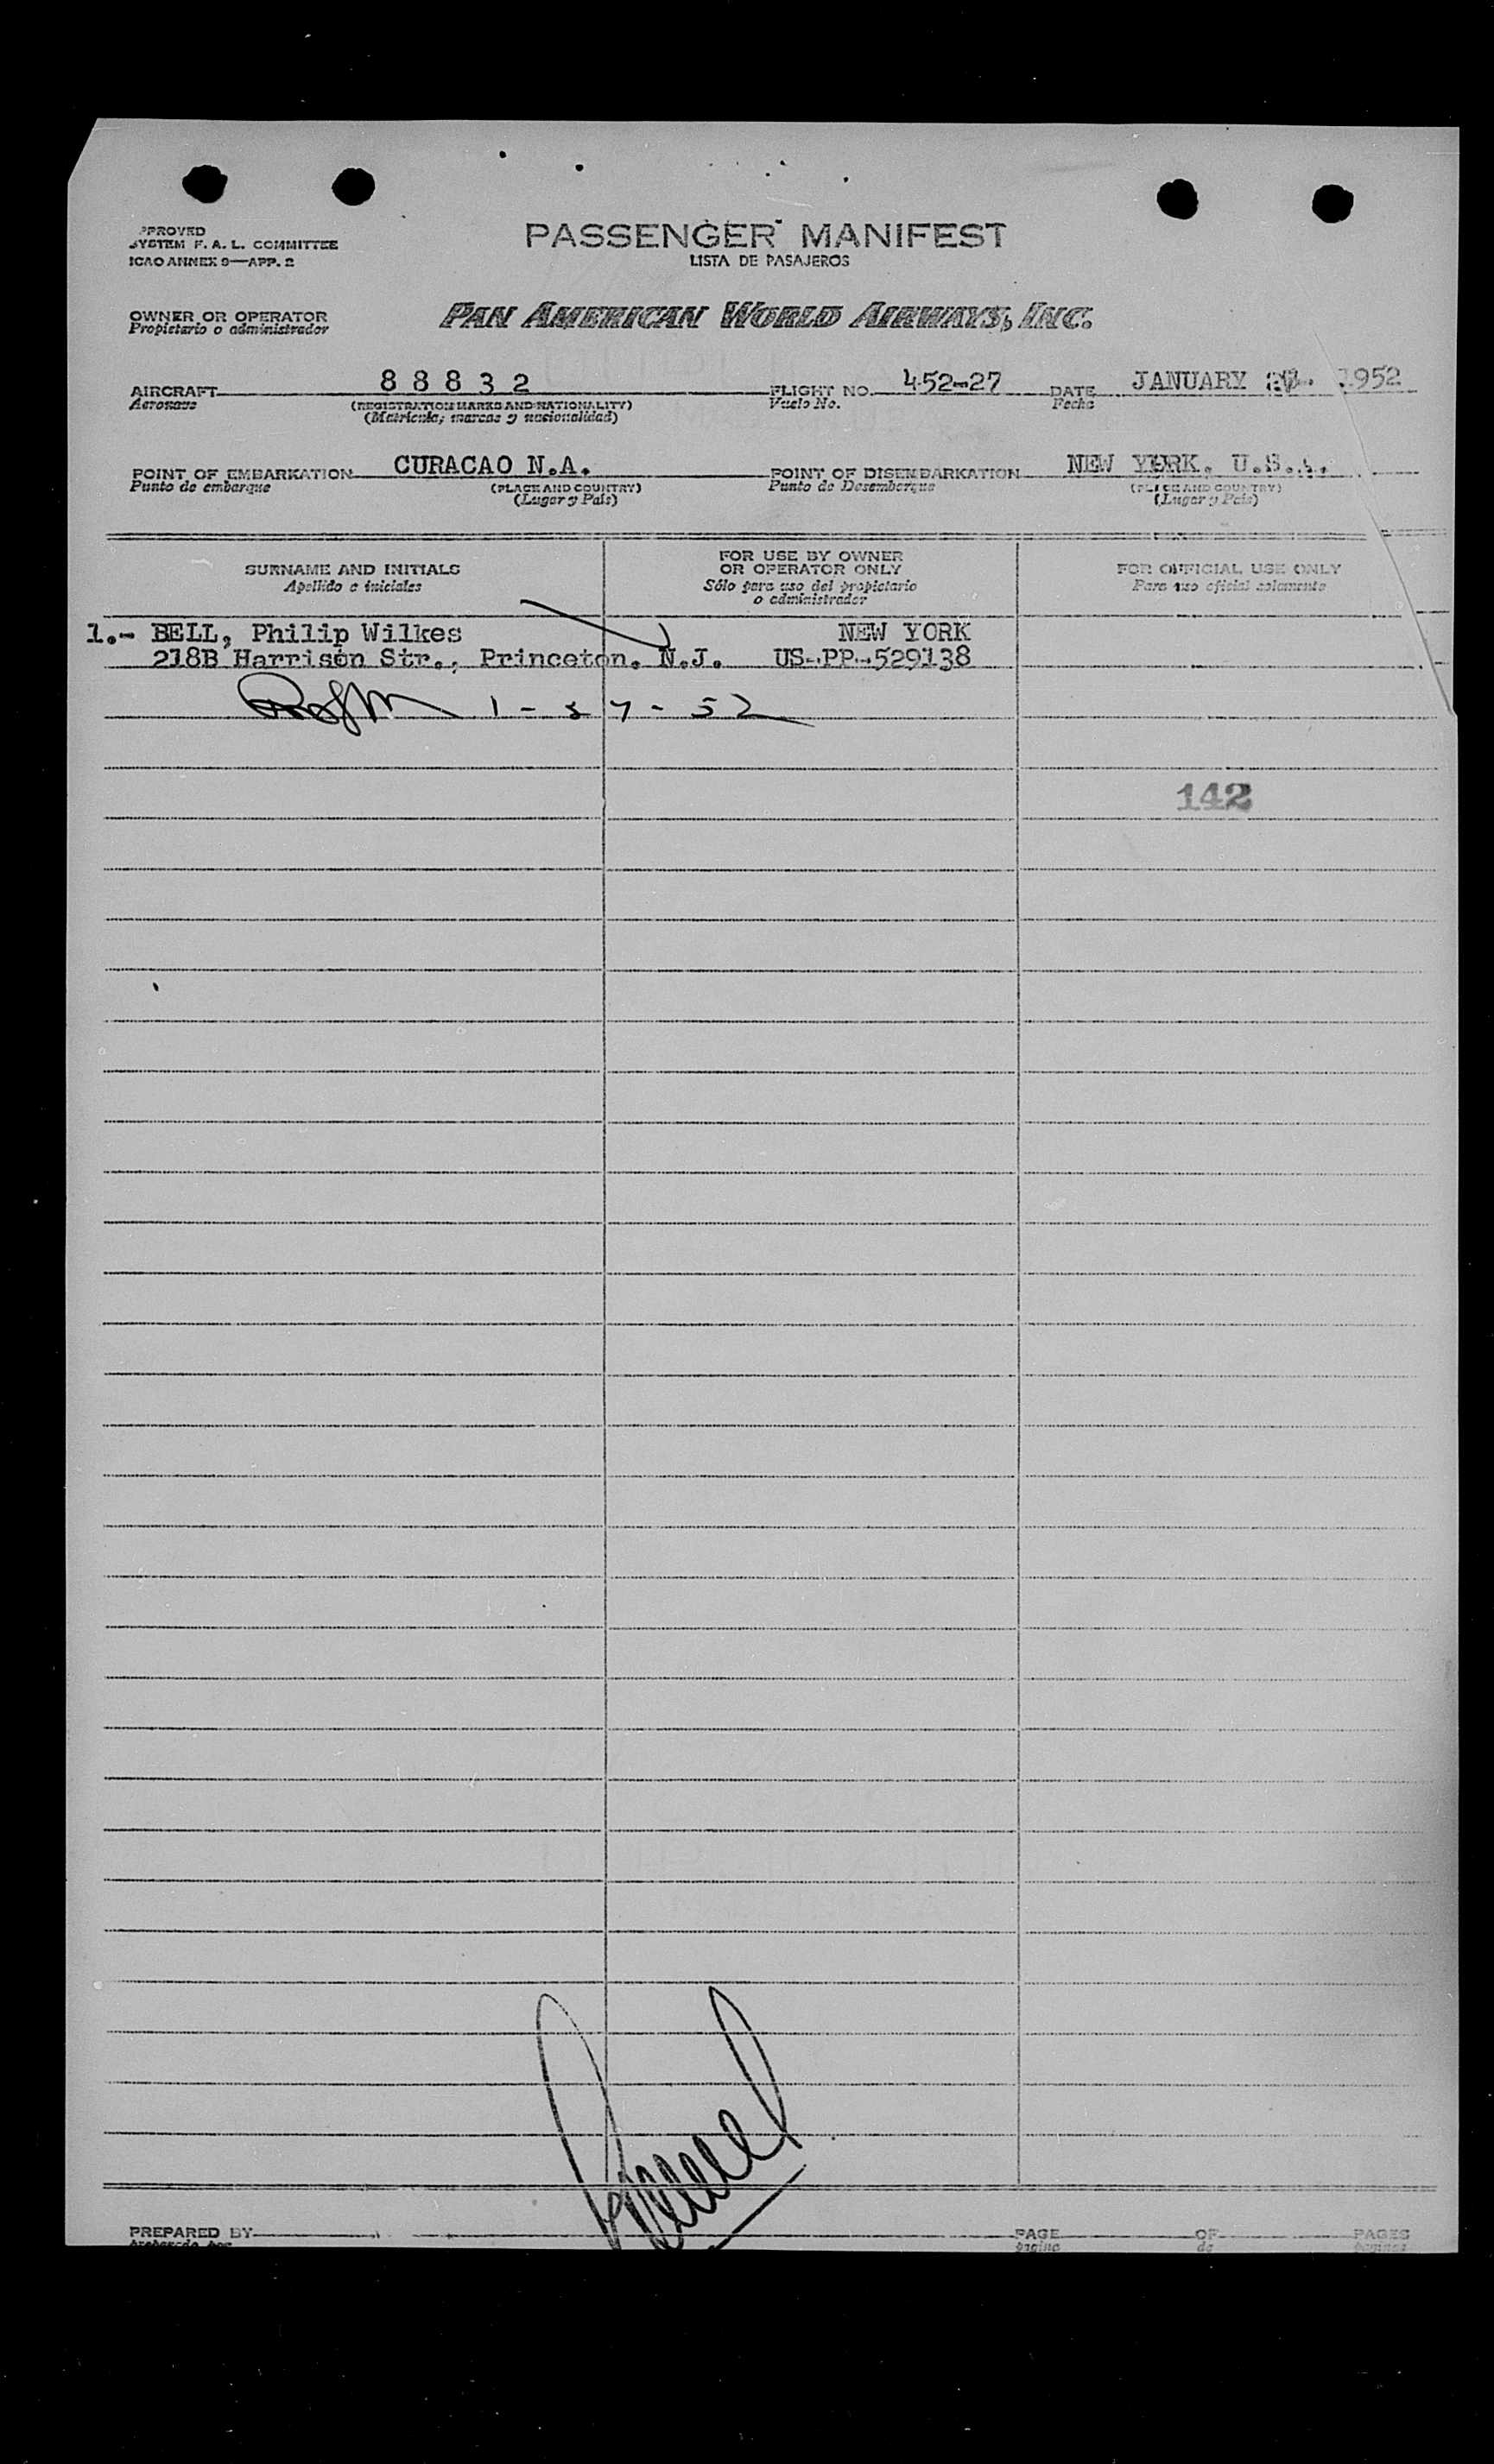 PPROVED
SYSTEM F. A. L. COMMITTEE
ICAO ANNEX 9—APP. 2
PASSENGER MANIFEST
LISTA DE PASAJEROS
OWNER OR OPERATOR
Propietario o administrador
PAN AMERICAN WORLD AIRWAYS, INC.
AIRCRAFT 8 8 8 3 2 FLIGHT NO. 452-27 DATE JANUARY 1952
Aeronave (REGISTRATION MARKS AND NATIONALITY) Vuelo No. Fecha
(Matricula, marcas y nacionalidad)
POINT OF EMBARKATION CURACAO N.A. POINT OF DISEMBARKATION NEW YORK, U.S.A.
Punto de embarque (PLACE AND COUNTRY) Punto de Desembarque (PLACE AND COUNTRY)
(Lugar y País) (Lugar y País)
SURNAME AND INITIALS
Apellido e iniciales
FOR USE BY OWNER
OR OPERATOR ONLY
Sólo para uso del propietario
o administrador
FOR OFFICIAL USE ONLY
Para uso oficial solamente
1.- BELL, Philip Wilkes NEW YORK
218B Harrison Str., Princeton, N.J. US-PP-529138
1-27-52
142
PREPARED BY PAGE OF PAGES
Preparado por página de páginas